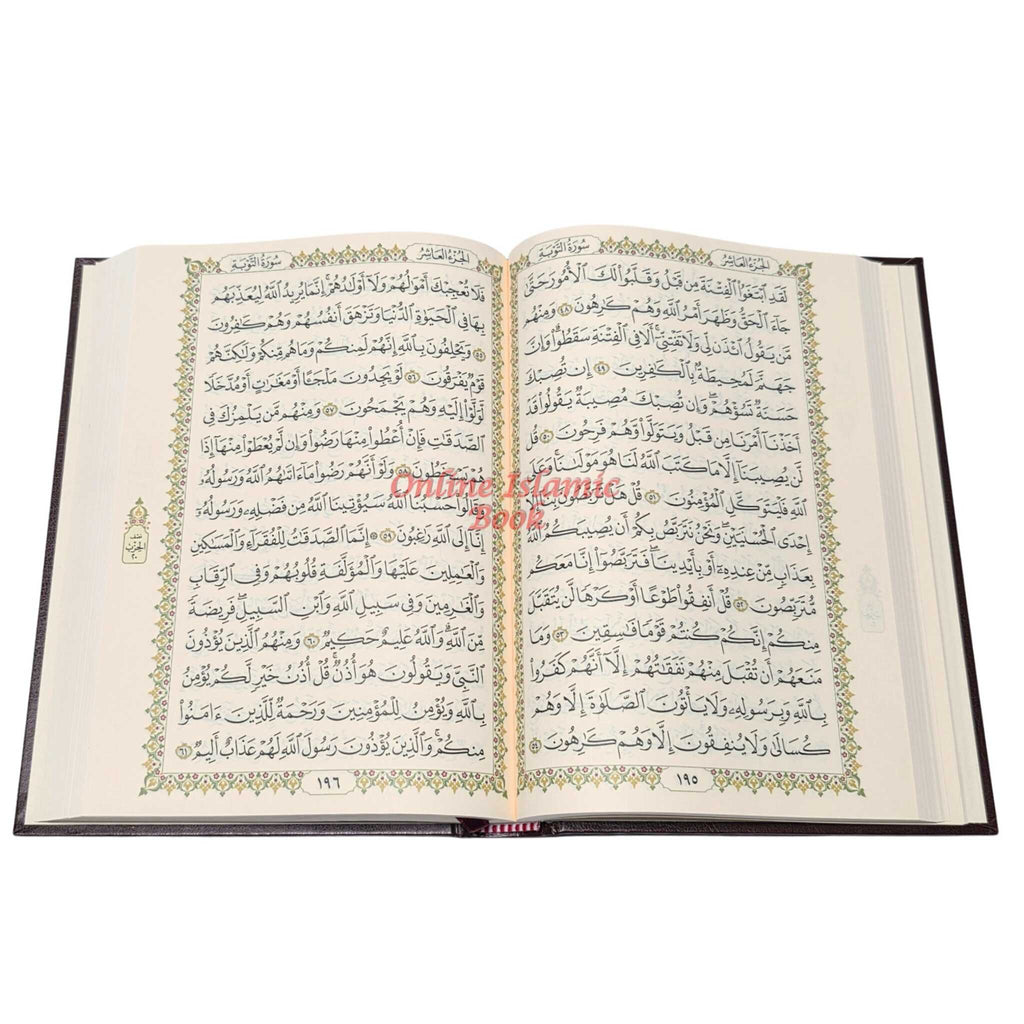 الجزء العاشر
سورة التوبة
لَقَدِ ٱبْتَغَوُا۟ ٱلْفِتْنَةَ مِن قَبْلُ وَقَلَّبُوا۟ لَكَ ٱلْأُمُورَ حَتَّىٰ
جَآءَ ٱلْحَقُّ وَظَهَرَ أَمْرُ ٱللَّهِ وَهُمْ كَٰرِهُونَ ٤٨ وَمِنْهُم
مَّن يَقُولُ ٱئْذَن لِّى وَلَا تَفْتِنِّىٓ أَلَا فِى ٱلْفِتْنَةِ سَقَطُوا۟ وَإِنَّ
جَهَنَّمَ لَمُحِيطَةٌۢ بِٱلْكَٰفِرِينَ ٤٩ إِن تُصِبْكَ
حَسَنَةٌ تَسُؤْهُمْ وَإِن تُصِبْكَ مُصِيبَةٌ يَقُولُوا۟ قَدْ
أَخَذْنَآ أَمْرَنَا مِن قَبْلُ وَيَتَوَلَّوا۟ وَّهُمْ فَرِحُونَ ٥٠ قُل
لَّن يُصِيبَنَآ إِلَّا مَا كَتَبَ ٱللَّهُ لَنَا هُوَ مَوْلَىٰنَا وَعَلَى
ٱللَّهِ فَلْيَتَوَكَّلِ ٱلْمُؤْمِنُونَ ٥١ قُلْ هَلْ تَرَبَّصُونَ بِنَآ إِلَّآ
إِحْدَى ٱلْحُسْنَيَيْنِ وَنَحْنُ نَتَرَبَّصُ بِكُمْ أَن يُصِيبَكُمُ ٱللَّهُ
بِعَذَابٍ مِّنْ عِندِهِۦٓ أَوْ بِأَيْدِينَا فَتَرَبَّصُوٓا۟ إِنَّا مَعَكُم
مُّتَرَبِّصُونَ ٥٢ قُلْ أَنفِقُوا۟ طَوْعًا أَوْ كَرْهًا لَّن يُتَقَبَّلَ
مِنكُمْ إِنَّكُمْ كُنتُمْ قَوْمًا فَٰسِقِينَ ٥٣ وَمَا
مَنَعَهُمْ أَن تُقْبَلَ مِنْهُمْ نَفَقَٰتُهُمْ إِلَّآ أَنَّهُمْ كَفَرُوا۟
بِٱللَّهِ وَبِرَسُولِهِۦ وَلَا يَأْتُونَ ٱلصَّلَوٰةَ إِلَّا وَهُمْ
كُسَالَىٰ وَلَا يُنفِقُونَ إِلَّا وَهُمْ كَٰرِهُونَ ٥٤
١٩٥
الجزء العاشر
سورة التوبة
فَلَا تُعْجِبْكَ أَمْوَٰلُهُمْ وَلَآ أَوْلَٰدُهُمْ إِنَّمَا يُرِيدُ ٱللَّهُ لِيُعَذِّبَهُم
بِهَا فِى ٱلْحَيَوٰةِ ٱلدُّنْيَا وَتَزْهَقَ أَنفُسُهُمْ وَهُمْ كَٰفِرُونَ
٥٥ وَيَحْلِفُونَ بِٱللَّهِ إِنَّهُمْ لَمِنكُمْ وَمَا هُم مِّنكُمْ وَلَٰكِنَّهُمْ
قَوْمٌ يَفْرَقُونَ ٥٦ لَوْ يَجِدُونَ مَلْجَـًٔا أَوْ مَغَٰرَٰتٍ أَوْ مُدَّخَلًا
لَّوَلَّوْا۟ إِلَيْهِ وَهُمْ يَجْمَحُونَ ٥٧ وَمِنْهُم مَّن يَلْمِزُكَ فِى
ٱلصَّدَقَٰتِ فَإِنْ أُعْطُوا۟ مِنْهَا رَضُوا۟ وَإِن لَّمْ يُعْطَوْا۟ مِنْهَآ إِذَا
هُمْ يَسْخَطُونَ ٥٨ وَلَوْ أَنَّهُمْ رَضُوا۟ مَآ ءَاتَىٰهُمُ ٱللَّهُ وَرَسُولُهُۥ
وَقَالُوا۟ حَسْبُنَا ٱللَّهُ سَيُؤْتِينَا ٱللَّهُ مِن فَضْلِهِۦ وَرَسُولُهُۥٓ
إِنَّآ إِلَى ٱللَّهِ رَٰغِبُونَ ٥٩ ۞ إِنَّمَا ٱلصَّدَقَٰتُ لِلْفُقَرَآءِ وَٱلْمَسَٰكِينِ
وَٱلْعَٰمِلِينَ عَلَيْهَا وَٱلْمُؤَلَّفَةِ قُلُوبُهُمْ وَفِى ٱلرِّقَابِ
وَٱلْغَٰرِمِينَ وَفِى سَبِيلِ ٱللَّهِ وَٱبْنِ ٱلسَّبِيلِ فَرِيضَةً
مِّنَ ٱللَّهِ وَٱللَّهُ عَلِيمٌ حَكِيمٌ ٦٠ وَمِنْهُمُ ٱلَّذِينَ يُؤْذُونَ
ٱلنَّبِىَّ وَيَقُولُونَ هُوَ أُذُنٌ قُلْ أُذُنُ خَيْرٍ لَّكُمْ يُؤْمِنُ
بِٱللَّهِ وَيُؤْمِنُ لِلْمُؤْمِنِينَ وَرَحْمَةٌ لِّلَّذِينَ ءَامَنُوا۟
مِنكُمْ وَٱلَّذِينَ يُؤْذُونَ رَسُولَ ٱللَّهِ لَهُمْ عَذَابٌ أَلِيمٌ ٦١
١٩٦
نصف
الحزب
٢٠
Online Islamic
Book